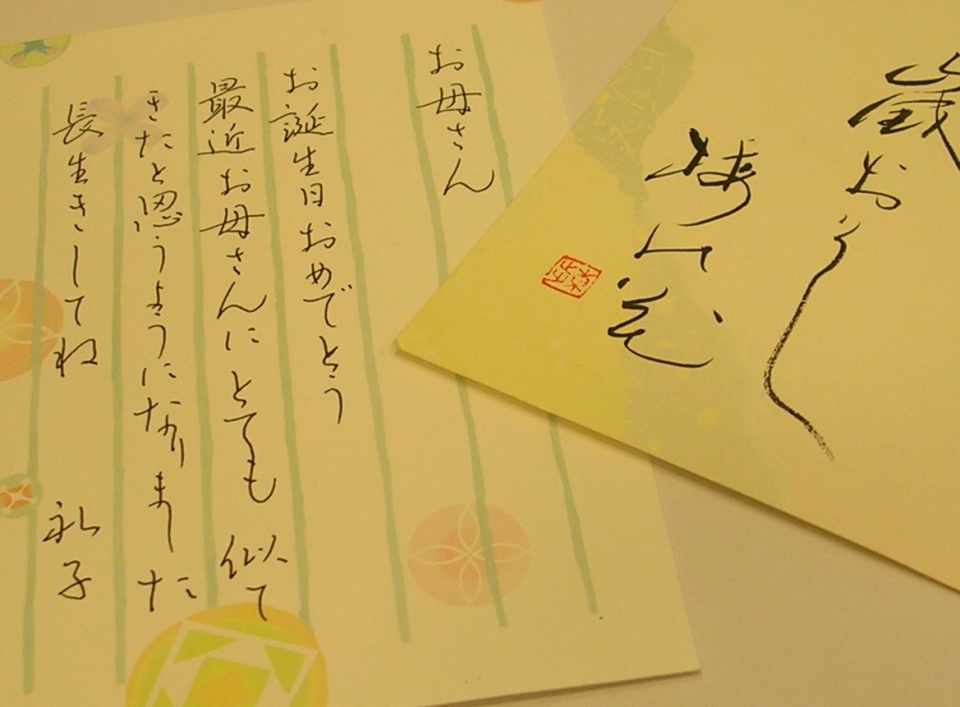 お母さん
お誕生日おめでとう
最近お母さんにとても似て
きたと思うようになりました
長生きしてね 礼子
歳おうし